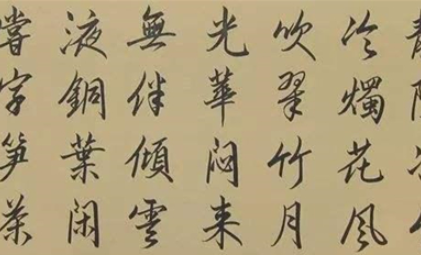 冷燭花風
吹翠竹月
光華悶来
無伴傾雲
液銅葉閑
嘗字笋茶